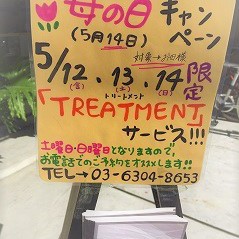 母の日キャンペーン
(5月14日)
対象→2回様
5/12.13.14限定
(金) (土) (日)
「TREATMENT」
トリートメント
サービス!!!
土曜日・日曜日となりますので、
お電話でのご予約をオススメします!!
TEL→03-6304-8653